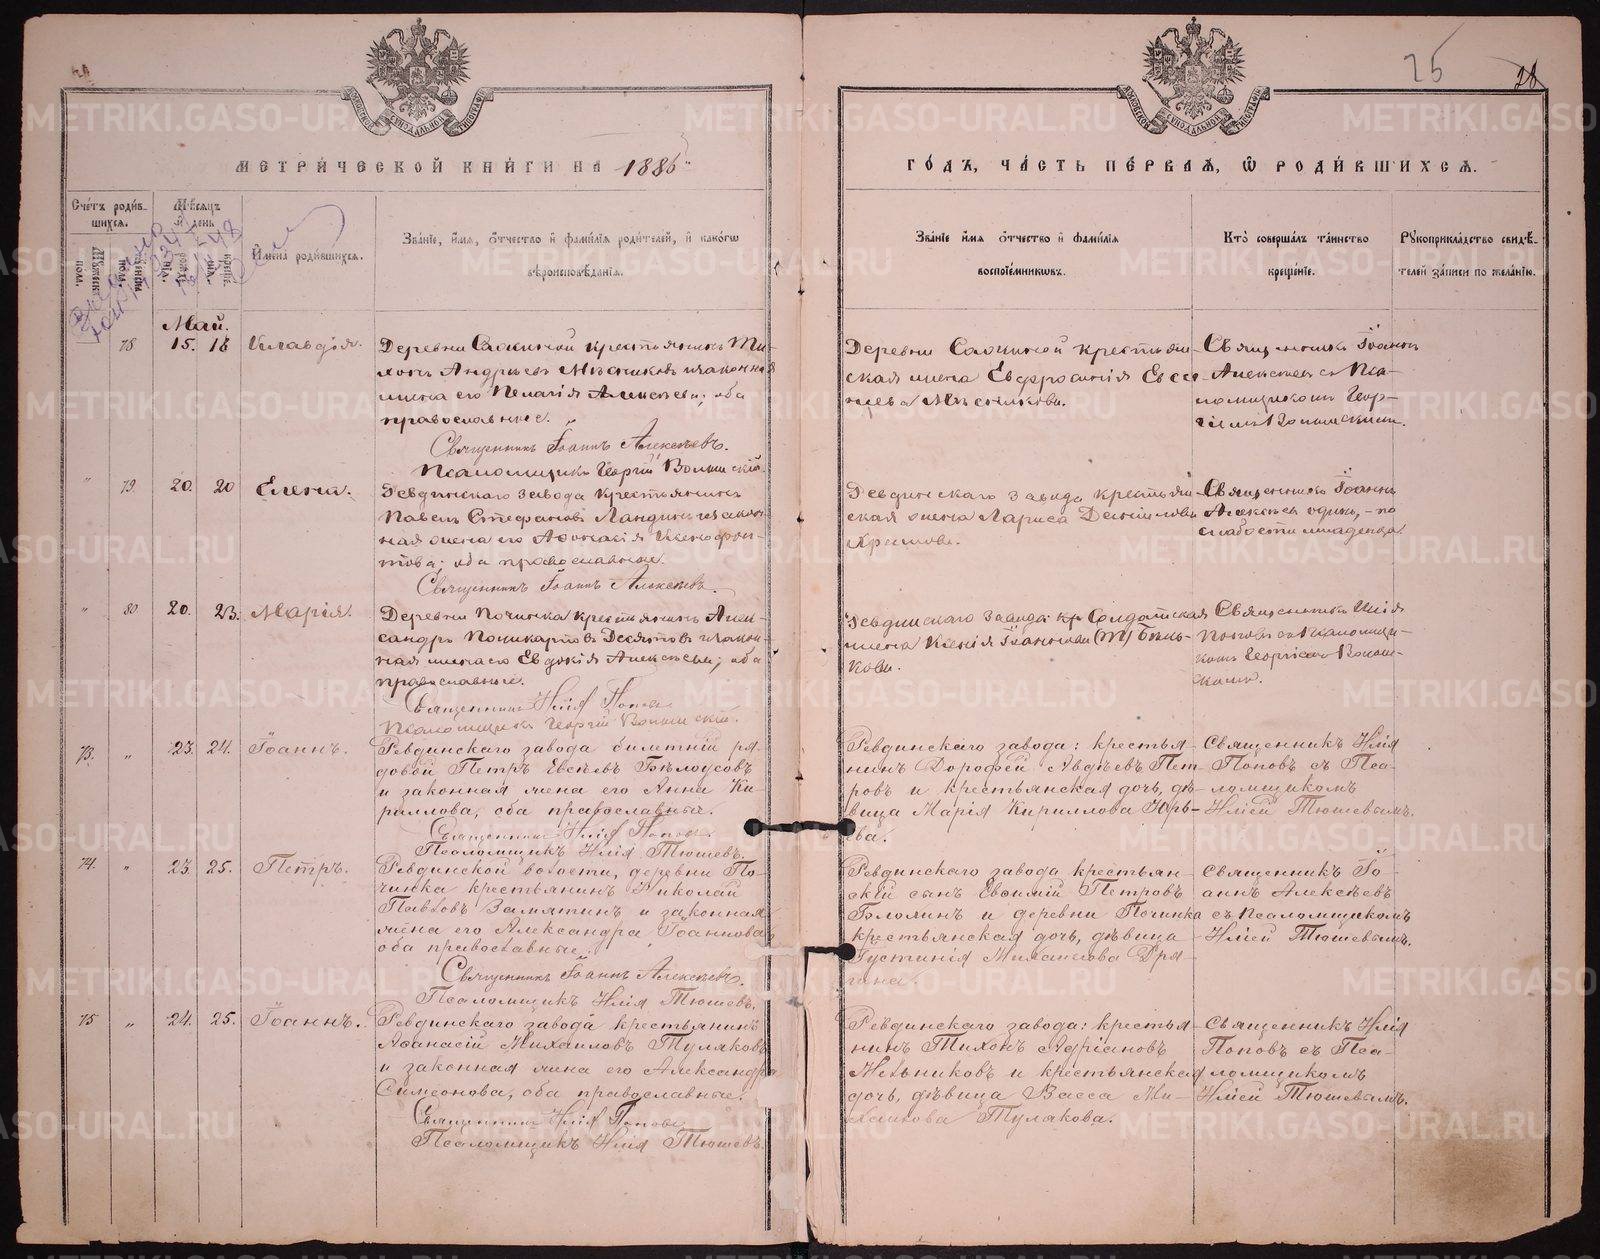 25
26
МЕТРИ́ЧЕСКОЙ КНИ́ГИ НА 1886
ГО́ДЪ, ЧА́СТЬ ПЕ́РВАЯ, Ѡ РОДИ́ВШИХСЯ.
Сче́тъ роди́в-
шихся.
Мѣ́сяцъ
и день
И́мена роди́вшихся.
Зва́нїе, и́мя, о́тчество и фами́лїя роди́телей, и како́гѡ
вѣроисповѣ́данїя.
Зва́нїе и́мя о́тчество и фами́лїя
воспрїе́мниковъ.
Кто̀ соверша́лъ та́инство
креще́нїе.
Рꙋкоприкла́дство свидѣ́-
телей за́писи по жела́нїю.
Май.
78 15. 18 Клавдія.
Деревни Саокиной крестьянинъ Ти-
хонъ Андреевъ Мѣсилковъ и законная
жена его Пелагія Алексѣева; оба
православные.
Священникъ Іоаннъ Алексѣевъ.
Псаломщикъ Георгій
Деревни Саокиной крестьян-
ская жена Евфросинія Евсе-
Мѣсилкова.
Священникъ Іоаннъ
Алексѣевъ съ Пса-
ломщикомъ Геор-
" 79 20. 20 Елена.
Ревдинскаго завода крестьянинъ
Павелъ Стефановъ Ландинъ и закон-
ная жена его Аѳанасія Ксенофон-
това; оба православные.
Священникъ Іоаннъ Алексѣевъ.
Ревдинскаго завода крестьян-
ская жена Лариса Даниилова
Священникъ Іоаннъ
Алексѣевъ одинъ, по
слабости младенца.
" 80 20. 23. Марія.
Деревни Починка крестьянинъ Алек-
сандръ Поликарповъ Десятовъ и закон-
ная жена его Евдокія Алексѣева; оба
православные.
Священникъ Илія Поповъ
Псаломщикъ Георгій
Ревдинскаго завода кр. Солдатская
жена Ксенія Іоаннова (ІІІ) Бѣль-
кова.
Священникъ Илія
Поповъ съ Псаломщи-
комъ Георгіемъ
73. " 23. 24. Іоаннъ.
Ревдинскаго завода билетный ря-
довой Петръ Евсѣевъ Бѣлоусовъ
и законная жена его Анна Ки-
риллова, оба православные.
Священникъ Илія Поповъ
Псаломщикъ Илія Тюшевъ.
Ревдинскаго завода: крестья-
нинъ Дорофей Авдѣевъ Пет-
ровъ и крестьянская дочь, дѣ-
вица Марія Кириллова Юрь-
ева.
Священникъ Илія
Поповъ съ Пса-
ломщикомъ
Иліей Тюшевымъ.
74. " 23. 25. Петръ.
Ревдинской волости, деревни По-
чинка крестьянинъ Николай
Павловъ Замятинъ и законная
жена его Александра Іоаннова
оба православные.
Священникъ Іоаннъ Алексѣевъ.
Псаломщикъ Илія Тюшевъ.
Ревдинскаго завода крестьян-
скій сынъ Евѳимій Петровъ
и деревни Починка
крестьянская дочь, дѣвица
Іустинія Михаилова Дря-
гина.
Священникъ Іо-
аннъ Алексѣевъ
съ Псаломщикомъ
Иліей Тюшевымъ.
75 " 24. 25. Іоаннъ.
Ревдинскаго завода крестьянинъ
Аѳанасій Михаиловъ Туляковъ
и законная жена его Александра
Симеонова, оба православные.
Священникъ Илія Поповъ
Псаломщикъ Илія Тюшевъ.
Ревдинскаго завода: крестья-
нинъ Тихонъ Адріановъ
Мельниковъ и крестьянская
дочь, дѣвица Васса Ми-
хаилова Тулякова.
Священникъ Илія
Поповъ съ Пса-
ломщикомъ
Иліей Тюшевымъ.
METRIKI.GASO-URAL.RU